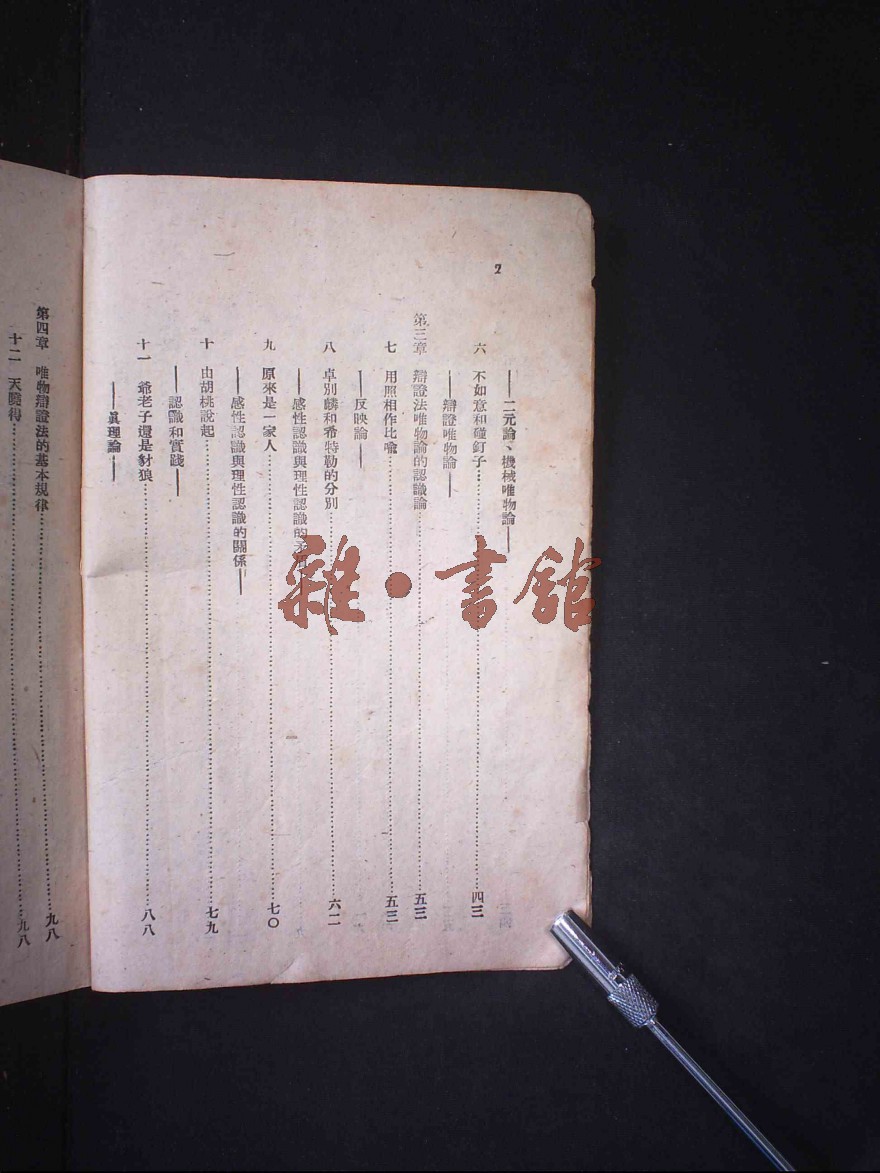 2
——二元論、機械唯物論——
六 不如意和碰釘子……四三
——辯證唯物論——
第三章 辯證法唯物論的認識論……五三
七 用照相作比喩……五三
——反映論——
八 卓別麟和希特勒的分別……六二
——感性認識與理性認識的矛盾——
九 原來是一家人……七〇
——感性認識與理性認識的關係——
十 由胡桃說起……七九
——認識和實踐——
十一 爺老子還是豺狼……八八
——眞理論——
第四章 唯物辯證法的基本規律……九八
十二 天曉得……九八
雜·書館